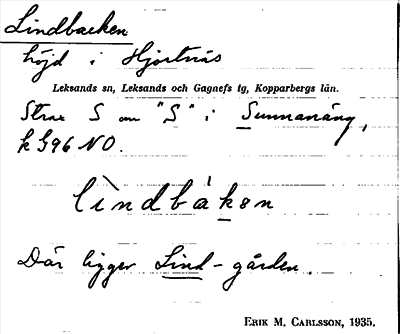 Lindbacken
höjd i Hjortnäs
Leksands sn, Leksands och Gagnefs tg, Kopparbergs län.
Strax S om "S" i Sunnanäng,
k G96 NO.
lìndbàkən
Där ligger Lind-gården.
ERIK M. CARLSSON, 1935.